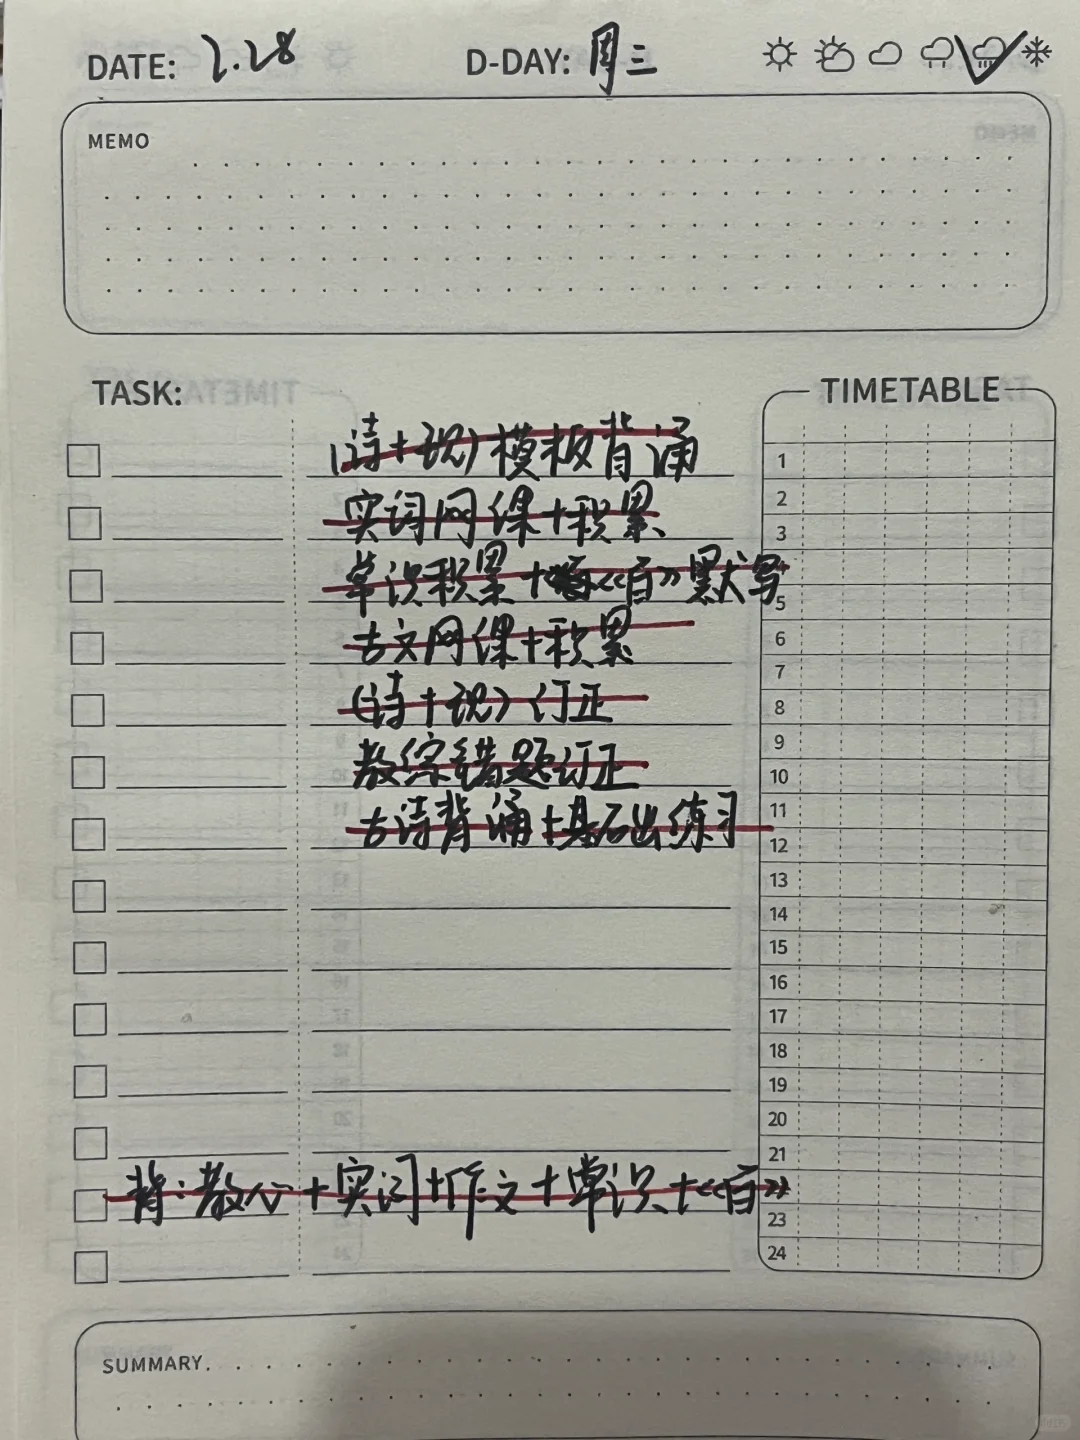 DATE: 2.28 D-DAY: 周三
MEMO
TASK:
TIMETABLE
(诗+现)模板背诵
实词网课+积累
常识积累+《百》默写
古文网课+积累
(诗+现)订正
教综错题订正
古诗背诵+基础练习
背:教心+实词+作文+常识+《百》
1
2
3
5
6
7
8
9
10
11
12
13
14
15
16
17
18
19
20
21
23
24
SUMMARY